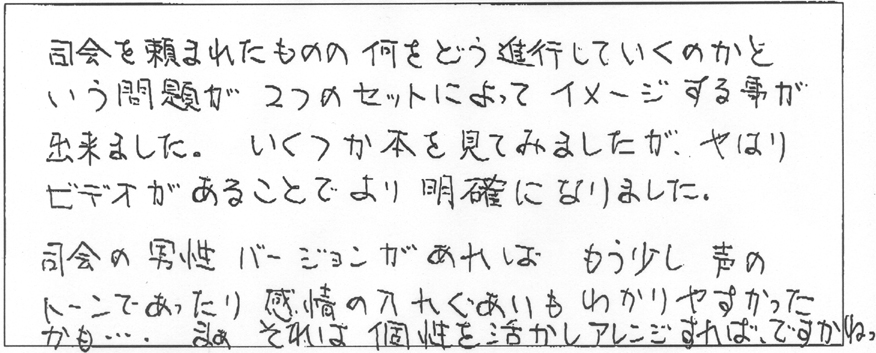 司会を頼まれたものの 何をどう進行していくのかと
いう問題が 2つのセットによって イメージする事が
出来ました。 いくつか本を見てみましたが、やはり
ビデオがあることでより 明確になりました。
司会の 男性 バージョンがあれば もう少し 声の
トーンであったり 感情の入れぐあいも わかりやすかった
かも…. まぁ それは 個性を活かしアレンジすれば、ですかねっ